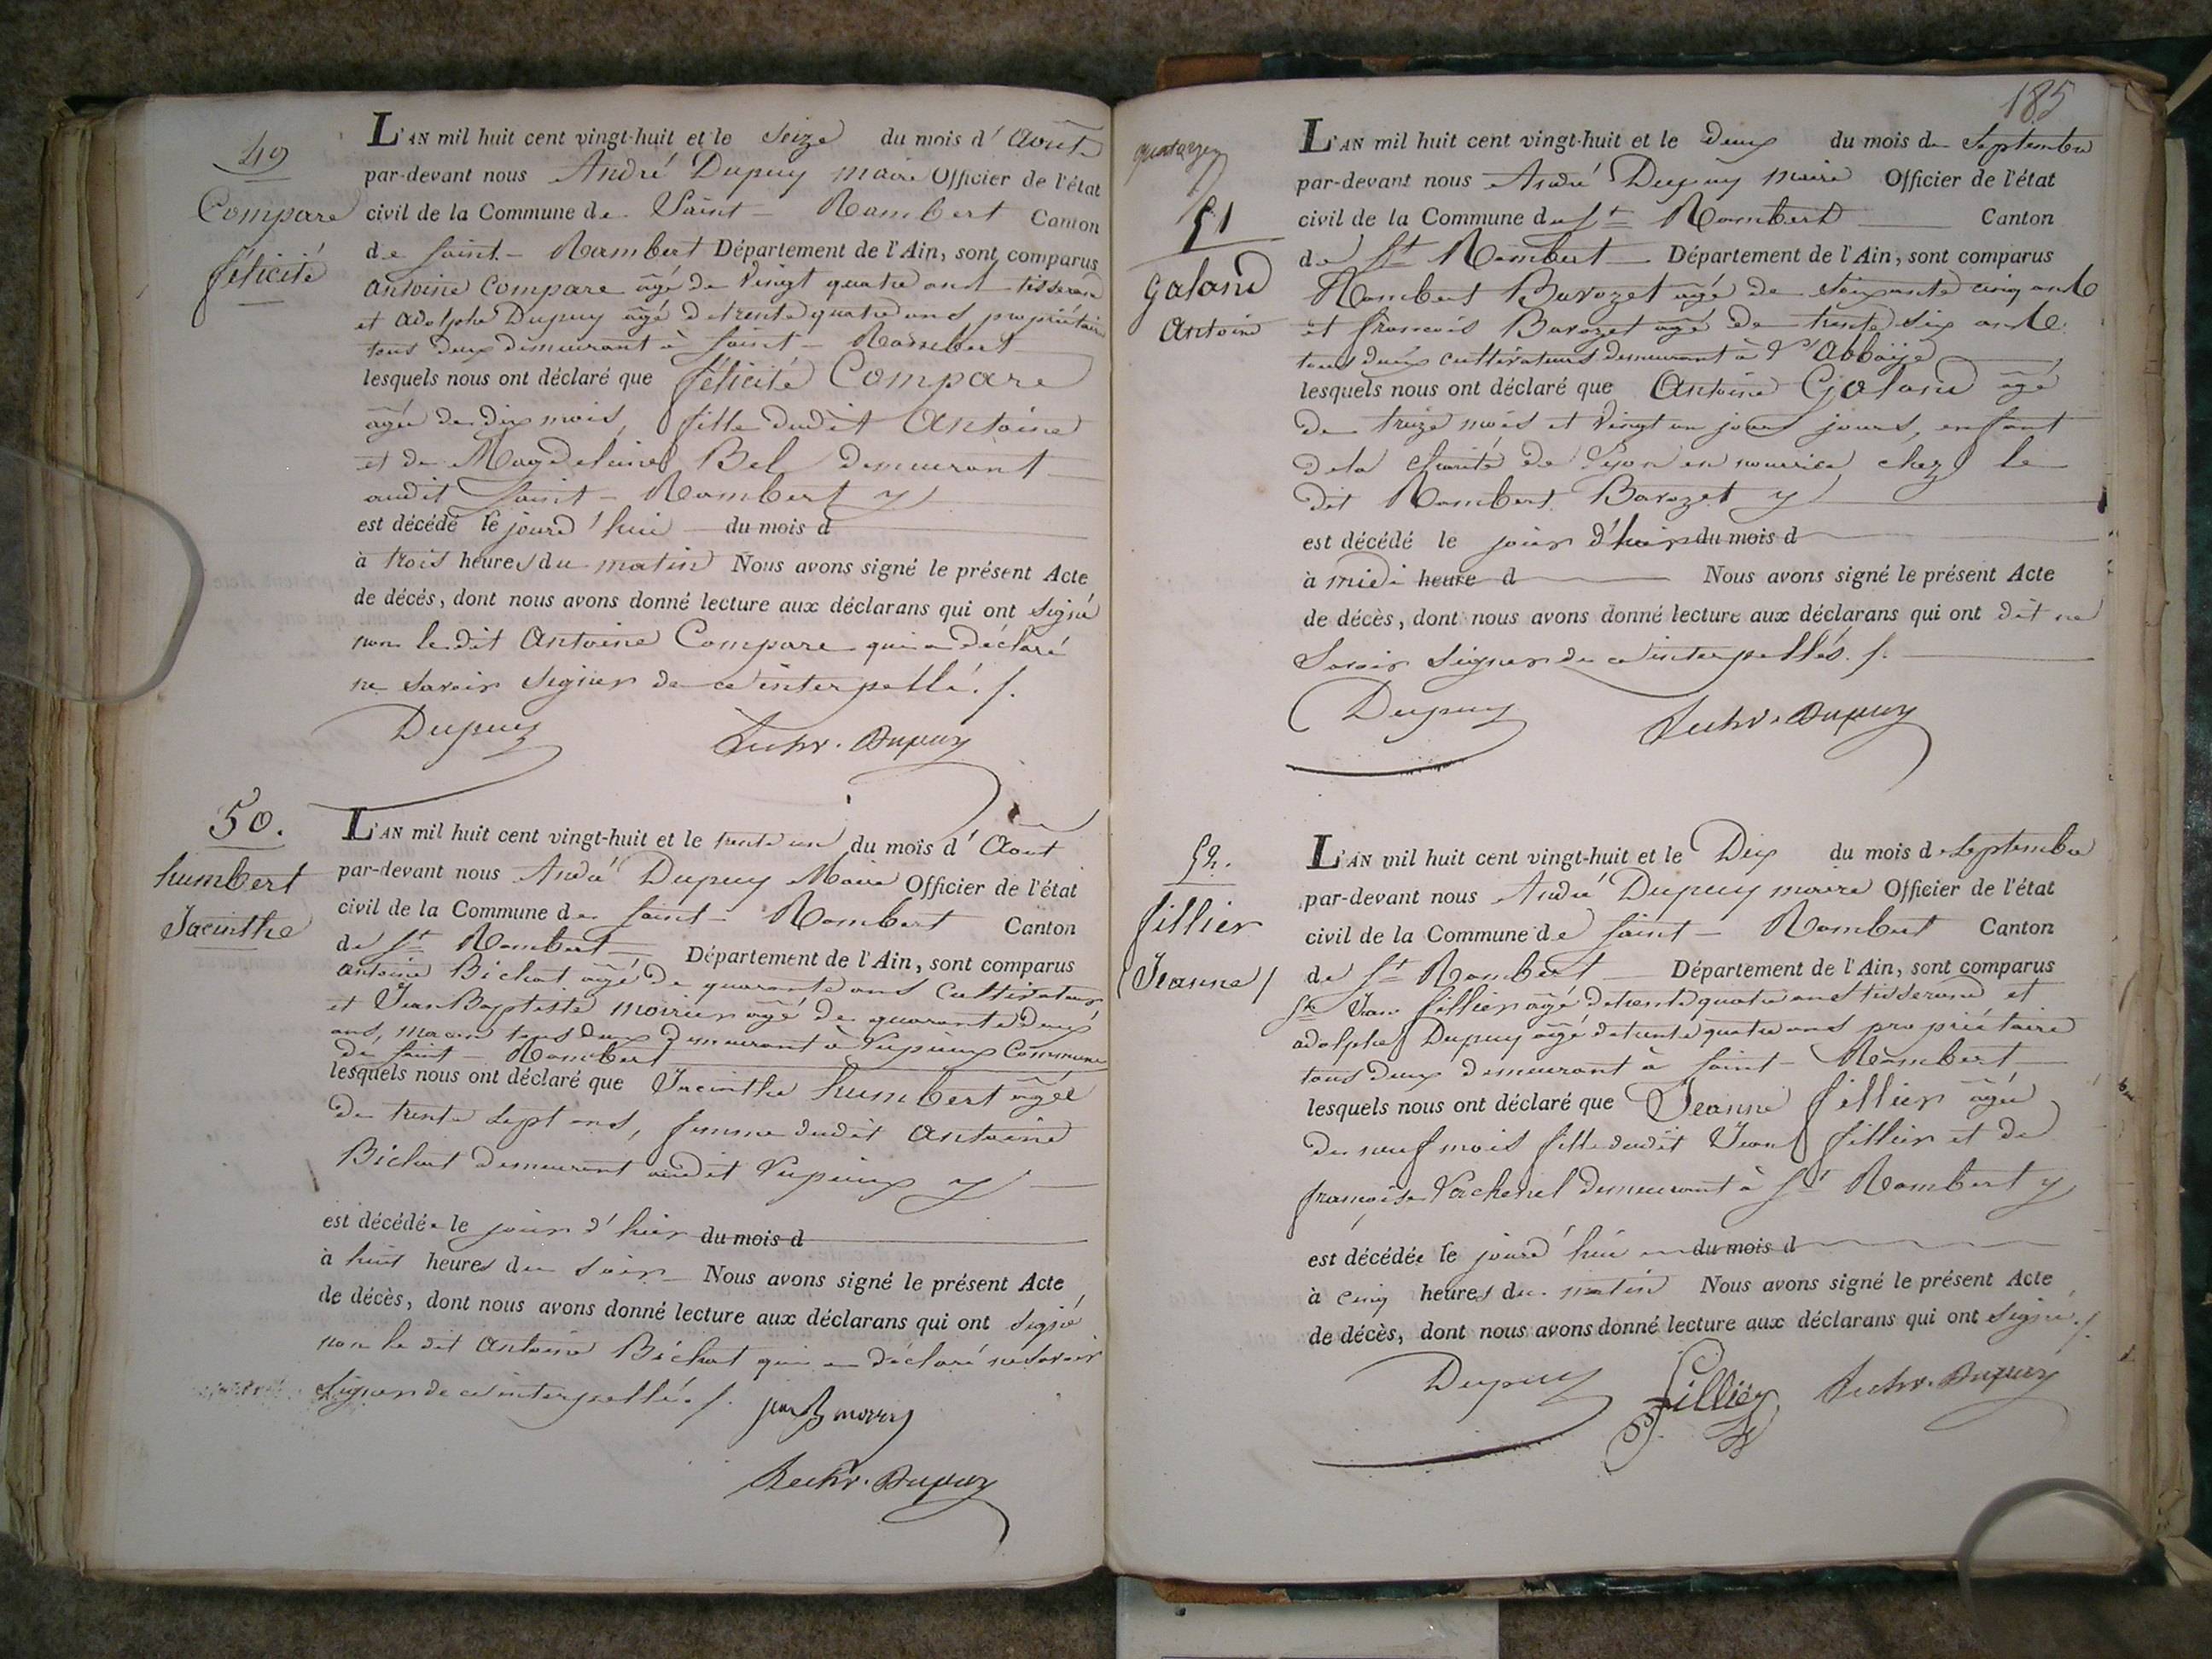 49
Compare
félicité
L'AN mil huit cent vingt-huit et le seize du mois d'Aoust
par-devant nous André Dupuy maire Officier de l'état
civil de la Commune de Saint-Rambert Canton
de Saint-Rambert Département de l'Ain, sont comparus
Antoine Compare âgé de vingt quatre ans tisserand
et adolphe Dupuy âgé de trente quatre ans propriétaire
tous deux demeurant à Saint-Rambert
lesquels nous ont déclaré que félicité Compare
âgée de dix mois, fille dudit Antoine
et de Magdelaine Bel demeurant
audit Saint-Rambert y
est décédé le jourd'hui du mois d
à trois heures du matin Nous avons signé le présent Acte
de décés, dont nous avons donné lecture aux déclarans qui ont signé
non le dit Antoine Compare qui a déclaré
ne savoir signer de ce interpellé ./.
Dupuy Dupuy
50.
humbert
Jacinthe
L'AN mil huit cent vingt-huit et le trente un du mois d'Aout
par-devant nous André Dupuy Maire Officier de l'état
civil de la Commune de Saint-Rambert Canton
de St Rambert Département de l'Ain, sont comparus
antoine Bichat âgé de quarante ans Cultivateur
et Jean Baptiste moirier âgé de quarante deux
ans, maçon tous deux demeurant à Vupieux Commune
de Saint-Rambert
lesquels nous ont déclaré que Jacinthe humbert âgée
de trente sept ans, femme dudit Antoine
Bichat demeurant audit Vupieux y
est décédée le jour d'hier du mois d
à huit heures du soir Nous avons signé le présent Acte
de décès, dont nous avons donné lecture aux déclarans qui ont signé
non le dit Antoine Bichat qui a déclaré ne savoir
signer de ce interpellé ./.
Dupuy
185
51
Galand
Antoine
L'AN mil huit cent vingt-huit et le deux du mois de Septembre
par-devant nous André Dupuy maire Officier de l'état
civil de la Commune de St Rambert Canton
de St Rambert Département de l'Ain, sont comparus
Rambert Barozet âgé de soixante cinq ans
et françois Barozet âgé de trente six ans
tous deux cultivateurs demeurant à l'Abbaye
lesquels nous ont déclaré que Antoine Galand âgé
de treize mois et vingt un jours jours, enfant
de la charité de Lyon en nourrice chez le
dit Rambert Barozet y
est décédé le jour d'hier du mois d
à midi heure d Nous avons signé le présent Acte
de décès, dont nous avons donné lecture aux déclarans qui ont dit ne
savoir signer de ce interpellés ./.
Dupuy Dupuy
52.
fillier
(Jeanne)
L'AN mil huit cent vingt-huit et le Dix du mois de Septembre
par-devant nous André Dupuy maire Officier de l'état
civil de la Commune de Saint-Rambert Canton
de St Rambert Département de l'Ain, sont comparus
Jean fillier âgé de trente quatre ans tisserand et
adolphe Dupuy âgé de trente quatre ans propriétaire
tous deux demeurant à Saint-Rambert
lesquels nous ont déclaré que Jeanne fillier âgée
de neuf mois fille dudit Jean fillier et de
françoise Vachenel demeurant à St Rambert y
est décédée le jourd'hui du mois d
à cinq heures du matin Nous avons signé le présent Acte
de décès, dont nous avons donné lecture aux déclarans qui ont signé ./.
Dupuy fillier Dupuy